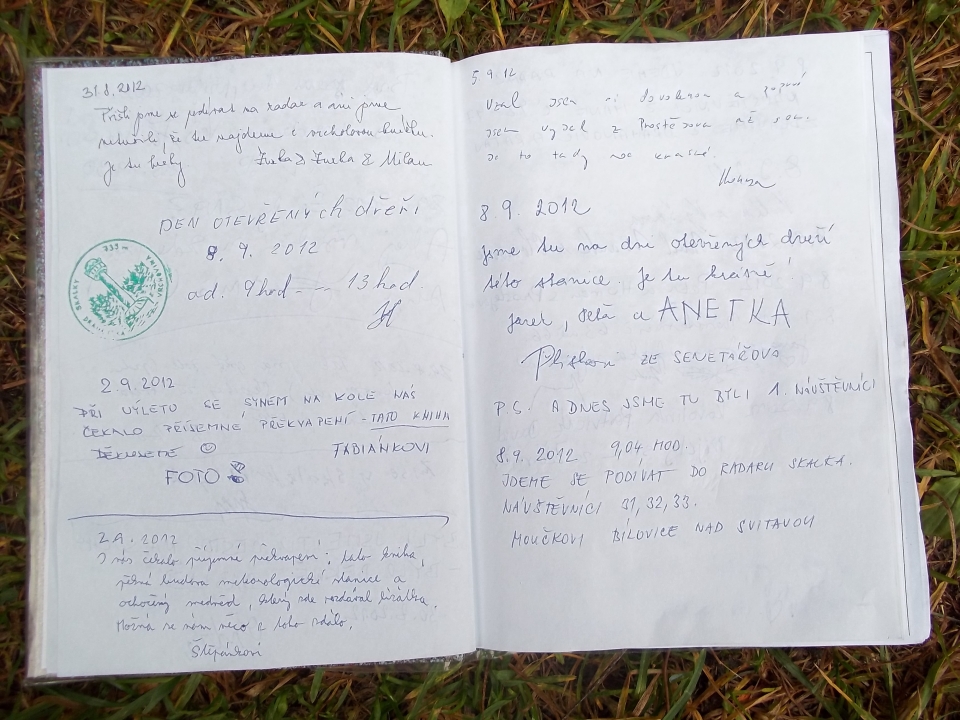 31.8.2012
Přišli jsme se podívat na radar a ani jsme
netušili, že tu najdeme i vrcholovou knížku.
Je tu hezky Zuzka & Zuzka & Milan
DEN OTEVŘENÝCH dřeří
8. 9. 2012
od. 9hod --- 13hod.
SKALKY
735 m
2.9.2012
PŘI VÝLETO SE SYNEM NA KOLE NÁS
ČEKALO PŘÍJEMNÉ PŘEKVAPENÍ - TATO KNIHA
DĚKUJEME ☺ FABIÁNKOVI
FOTO
2.9.2012
I nás čekalo příjemné překvapení: tato kniha,
pěkná budova meteorologické stanice a
ochočený medvěd, který zde rozdával lízátka.
Možná se nám něco z toho zdálo.
Štěpánkovi
5.9.12
Vzal jsem si dovolenou a
jsem vyjel z Prostějova až sem.
Je to tady moc krásné.
Honza
8.9.2012
Jsme tu na dni otevřených dveří
této stanice. Je tu krásně!
Jarek, a ANETKA
ZE SENETÁŘOVA
P.S. A DNES JSME TU BYLI 1. NÁVŠTĚVNÍCI
8.9.2012 9,04 HOD.
JDEME SE PODÍVAT DO RADARU SKALKA.
NÁVŠTĚVNÍCI 31, 32, 33.
MOUČKOVI BÍLOVICE NAD SVITAVOU